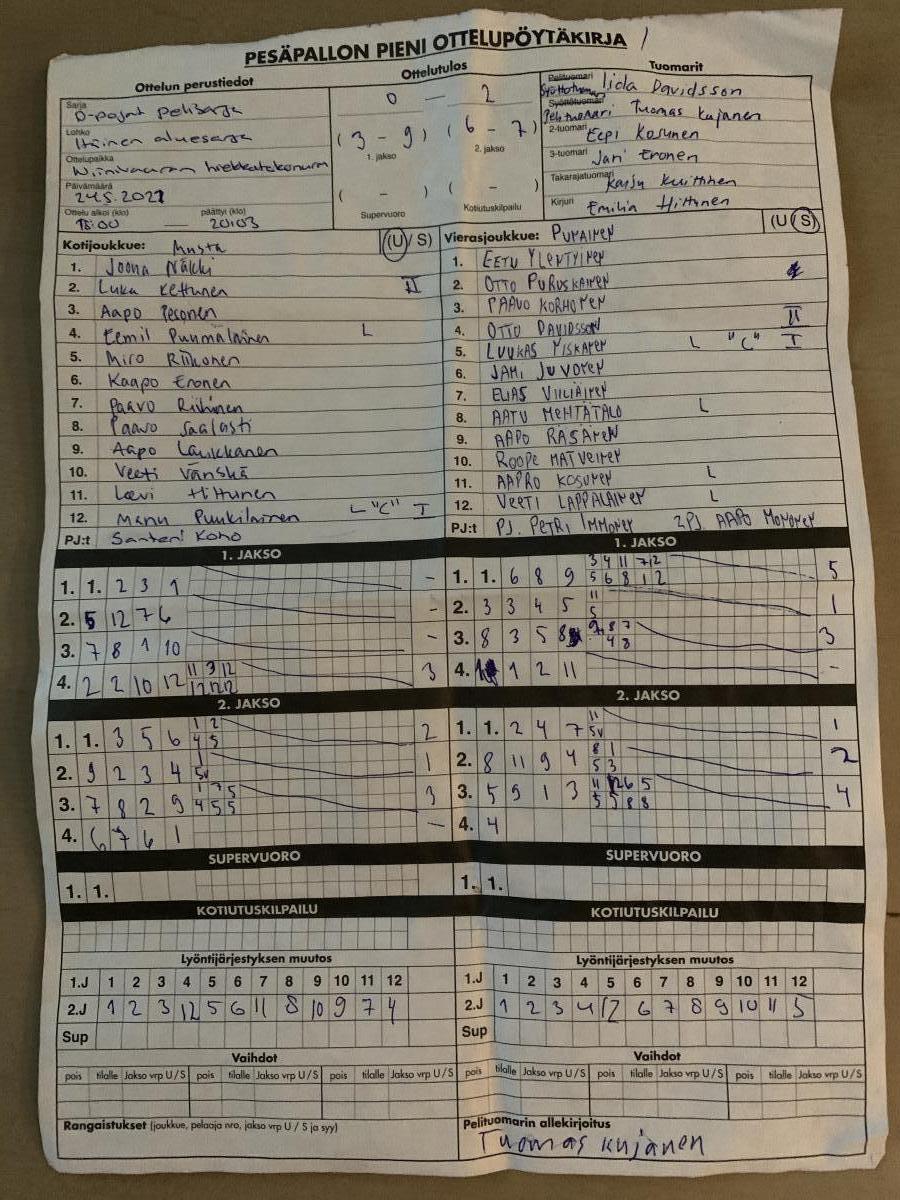 PESÄPALLON PIENI OTTELUPÖYTÄKIRJA /
Ottelun perustiedot
Sarja
D-pojat pelisarja
Lohko
Itäinen aluesarja
Ottelupaikka
hiekkatekonurmi
Päivämäärä
24.5.2021
Ottelu alkoi (klo) päättyi (klo)
18:00 — 20:03
Ottelutulos
0 — 2
( 3 - 9 ) ( 6 - 7 )
1. jakso 2. jakso
( - ) ( - )
Supervuoro Kotiutuskilpailu
Tuomarit
Pelituomari Iida Davidsson
Syöttötuomari
Syöttötuomari Tuomas Kujanen
Pelituomari
2-tuomari Eepi Kosunen
3-tuomari Jari Eronen
Takarajatuomari Kaisu Kuittinen
Kirjuri Emilia Hiltunen
Kotijoukkue: Musta (U / S)
1. Joona Näkki
2. Luka Kettunen II
3. Aapo Pesonen
4. Eemil Puumalainen L
5. Miro Riikonen
6. Kaapo Eronen
7. Paavo Riihinen
8. Paavo Saalasti
9. Aapo Laukkanen
10. Veeti Vänskä
11. Leevi Hiltunen
12. Manu Puukilainen L "C" I
PJ:t Santeri Koho
Vierasjoukkue: PUNAINEN (U / S)
1. EETU YLENTYINEN
2. OTTO PURUSKAINEN
3. PAAVO KORHONEN
4. OTTO DAVIDSSON II
5. LUUKAS MISKANEN L "C" I
6. JANI JUVONEN
7. ELIAS VIILIÄINEN
8. AATU MEHTÄTALO L
9. AAPO RÄSÄNEN
10. ROOPE MATVEINEN
11. AAPRO KOSUNEN L
12. VEETI LAPPALAINEN L
PJ:t PJ. PETRI IMMONEN 2PJ. AAPO MONONEN
1. JAKSO
1. 1. 2 3 1 -
2. 5 12 7 6 -
3. 7 8 1 10 -
4. 2 2 10 12 11 3 12 3
12 12 12
1. JAKSO
3 4 11 7 12
1. 1. 6 8 9 5 6 8 1 2 5
2. 3 3 4 5 11 1
5
3. 8 3 5 8 9 8 7 3
4 8
4. 1 2 11 -
2. JAKSO
1. 1. 3 5 6 1 2 2
4 5
2. 9 2 3 4 1 1
5v
3. 7 8 2 9 1 7 5 3
4 5 5
4. 6 7 6 1 —
2. JAKSO
1. 1. 2 4 7 11 1
5v
2. 8 11 9 4 8 1 2
5 3
3. 5 9 1 3 11 12 6 5 4
5 5 8 8
4. 4
SUPERVUORO
1. 1.
SUPERVUORO
1. 1.
KOTIUTUSKILPAILU
KOTIUTUSKILPAILU
Lyöntijärjestyksen muutos
1.J 1 2 3 4 5 6 7 8 9 10 11 12
2.J 1 2 3 12 5 6 11 8 10 9 7 4
Sup
Lyöntijärjestyksen muutos
1.J 1 2 3 4 5 6 7 8 9 10 11 12
2.J 1 2 3 4 12 6 7 8 9 10 11 5
Vaihdot
pois tilalle Jakso vrp U / S pois tilalle Jakso vrp U / S pois tilalle Jakso vrp U / S
Vaihdot
pois tilalle Jakso vrp U / S pois tilalle Jakso vrp U / S pois tilalle Jakso vrp U / S
Rangaistukset (joukkue, pelaaja nro, jakso vrp U / S ja syy)
Pelituomarin allekirjoitus
Tuomas Kujanen